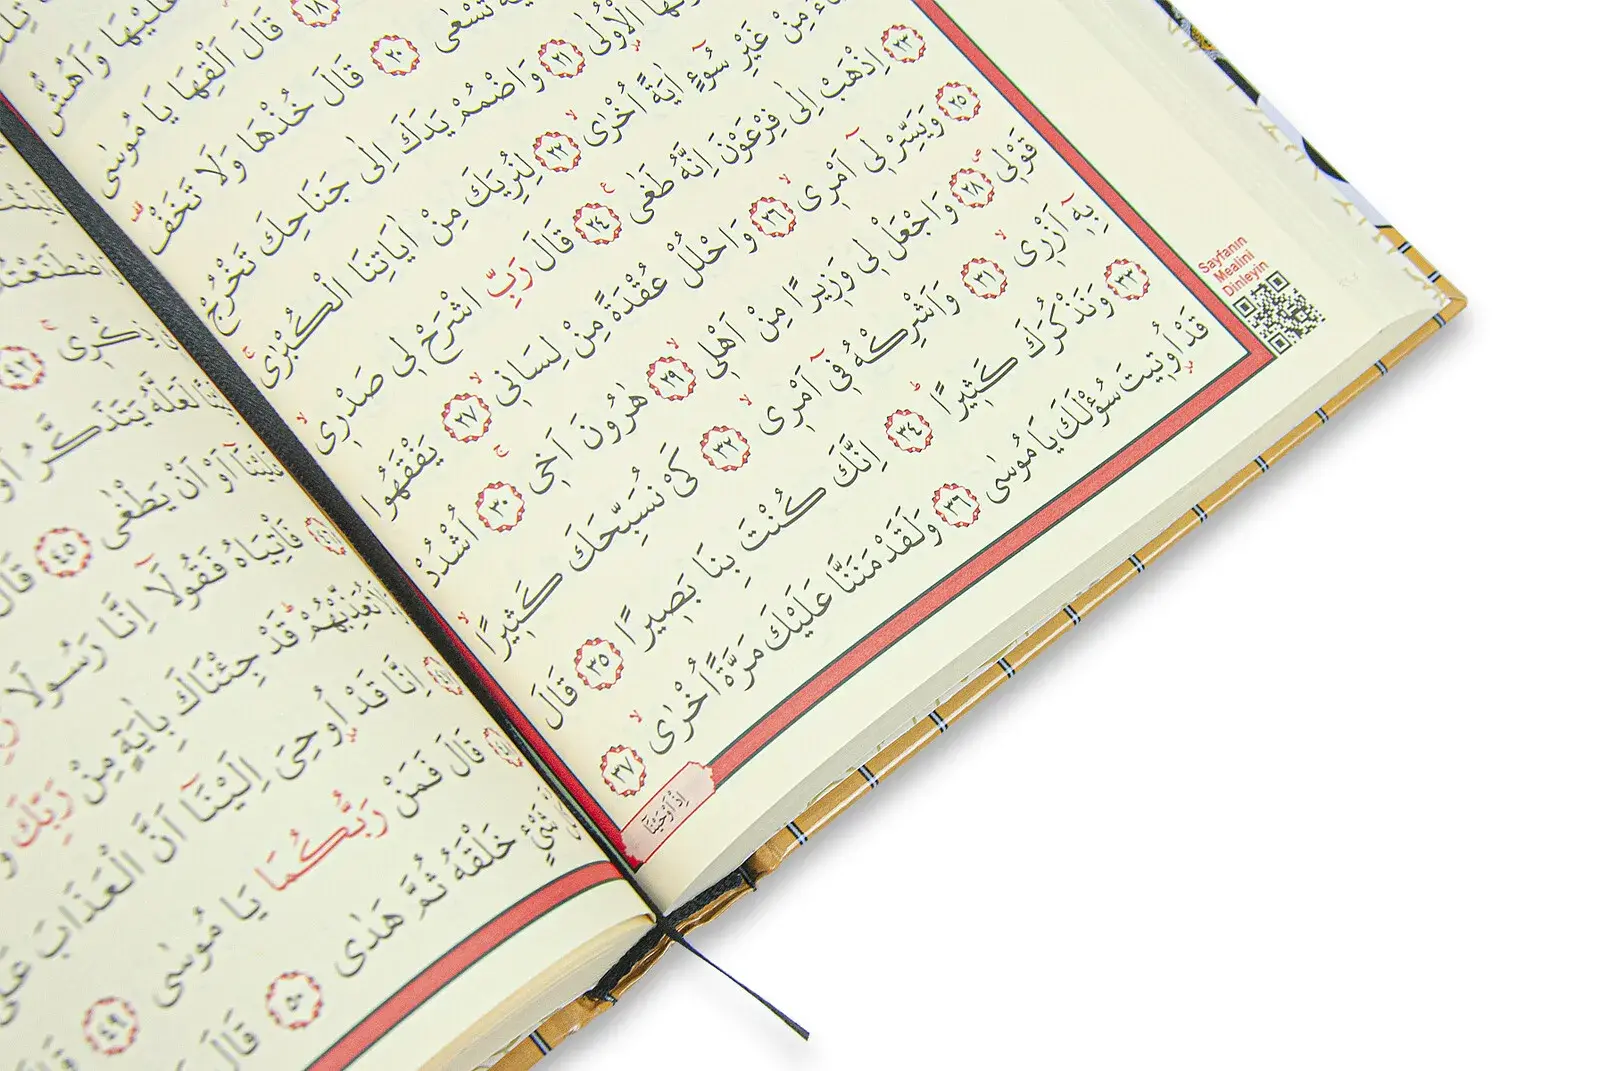 عَلَيْهَا وَاَهُشُّ
﴿١٨﴾ قَالَ اَلْقِهَا يَا مُوسٰى
تَسْعٰى ﴿٢٠﴾ قَالَ خُذْهَا وَلَا تَخَفْ
الْاُو۫لٰى ﴿٢١﴾ وَاضْمُمْ يَدَكَ اِلٰى جَنَاحِكَ تَخْرُجْ
مِنْ غَيْرِ سُٓوءٍ اٰيَةً اُخْرٰىۙ ﴿٢٢﴾ لِنُرِيَكَ مِنْ اٰيَاتِنَا الْكُبْرٰىۚ
﴿٢٣﴾ اِذْهَبْ اِلٰى فِرْعَوْنَ اِنَّهُ طَغٰىۚ ﴿٢٤﴾ قَالَ رَبِّ اشْرَحْ ل۪ي صَدْر۪يۙ
﴿٢٥﴾ وَيَسِّرْ ل۪ٓي اَمْر۪يۙ ﴿٢٦﴾ وَاحْلُلْ عُقْدَةً مِنْ لِسَان۪يۙ ﴿٢٧﴾ يَفْقَهُوا
قَوْل۪يۖ ﴿٢٨﴾ وَاجْعَلْ ل۪ي وَز۪يرًا مِنْ اَهْل۪يۙ ﴿٢٩﴾ هٰرُونَ اَخ۪يۚ ﴿٣٠﴾ اُشْدُدْ
بِه۪ٓ اَزْر۪يۙ ﴿٣١﴾ وَاَشْرِكْهُ ف۪ٓي اَمْر۪يۙ ﴿٣٢﴾ كَيْ نُسَبِّحَكَ كَث۪يرًاۙ
﴿٣٣﴾ وَنَذْكُرَكَ كَث۪يرًاۜ ﴿٣٤﴾ اِنَّكَ كُنْتَ بِنَا بَص۪يرًا ﴿٣٥﴾ قَالَ
قَدْ اُو۫ت۪يتَ سُؤْلَكَ يَا مُوسٰى ﴿٣٦﴾ وَلَقَدْ مَنَنَّا عَلَيْكَ مَرَّةً اُخْرٰىۙ ﴿٣٧﴾
اِذْ اَوْحَيْنَٓا
Sayfanın
Mealini
Dinleyin
وَاصْطَنَعْتُكَ
ذِكْر۪يۚ ﴿٤٢﴾
لَعَلَّهُ يَتَذَكَّرُ اَوْ
عَلَيْنَٓا اَوْ اَنْ يَطْغٰى ﴿٤٥﴾ قَالَ
فَاْتِيَاهُ فَقُولَٓا اِنَّا رَسُولَا
تُعَذِّبْهُمْۜ قَدْ جِئْنَاكَ بِاٰيَةٍ مِنْ رَبِّكَ
اِنَّا قَدْ اُو۫حِيَ اِلَيْنَٓا اَنَّ الْعَذَابَ عَلٰى
قَالَ فَمَنْ رَبُّكُمَا يَا مُوسٰى ﴿٤٩﴾
شَيْءٍ خَلْقَهُ ثُمَّ هَدٰى ﴿٥٠﴾ قَالَ